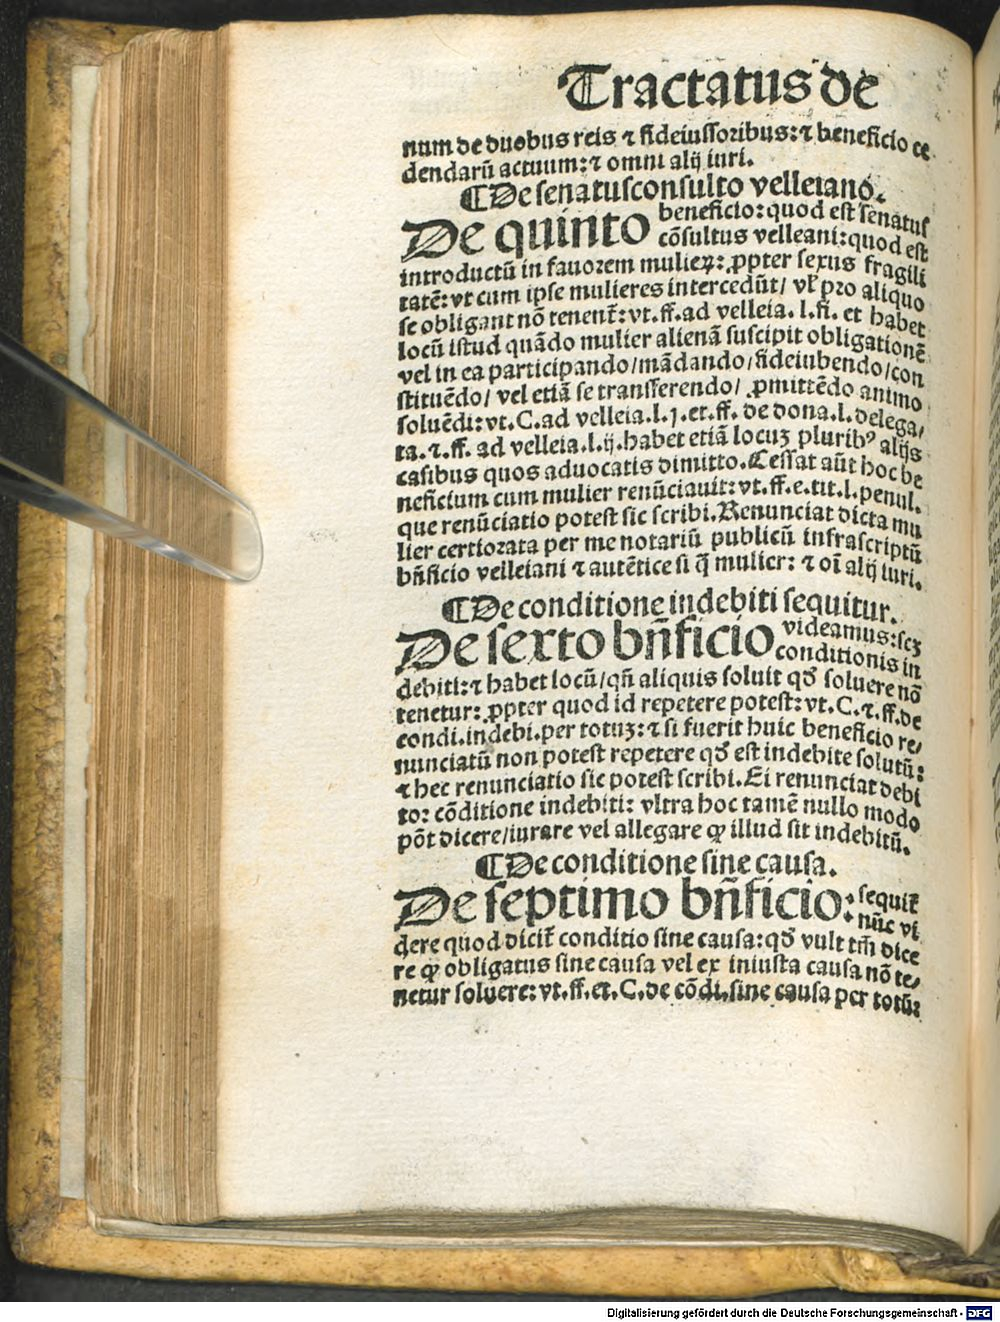 Tractatus de
num de duobus reis ⁊ fideiussoribus: ⁊ beneficio ce
dendarū actuum: ⁊ omni alij iuri.
¶ De senatusconsulto velleiano.
De quinto beneficio: quod est senatus
cōsultus velleani: quod est
introductū in fauorem mulieꝝ: ꝓpter sexus fragili
tatē: vt cum ipse mulieres intercedūt/ vl' pro aliquo
se obligant nō tenent̄: vt. ff. ad velleia. l. fi. et habet
locū istud quādo mulier alienā suscipit obligationē
vel in ea participando/ mādando/ fideiubendo/ con
stituēdo/ vel etiā se transferendo/ ꝓmittēdo animo
soluēdi: vt. C. ad velleia. l. j. et. ff. de dona. l. delega/
ta. ⁊. ff. ad velleia. l. ij. habet etiā locuʒ pluribꝰ alijs
casibus quos aduocatis dimitto. Cessat aūt hoc be
neficium cum mulier renūciauit: vt. ff. e. tit. l. penul.
que renūciatio potest sic scribi. Renunciat dicta mu
lier certiorata per me notariū publicū infrascriptū
bn̄ficio velleiani ⁊ autētice si q̄ mulier: ⁊ oī alij iuri.
¶ De conditione indebiti sequitur.
De sexto bn̄ficio videamus: scʒ
conditionis in
debiti: ⁊ habet locū/ qn̄ aliquis soluit qď soluere nō
tenetur: ꝓpter quod id repetere potest: vt. C. ⁊. ff. de
condi. indebi. per totuʒ: ⁊ si fuerit huic beneficio re/
nunciatū non potest repetere qď est indebite solutū:
⁊ hec renunciatio sic potest scribi. Ei renunciat debi
tor cōditione indebiti: vltra hoc tamē nullo modo
pōt dicere/ iurare vel allegare ꝙ illud sit indebitū.
¶ De conditione sine causa.
De septimo bn̄ficio: sequit̄
nūc vi
dere quod dicit̄ conditio sine causa: qď vult tm̄ dice
re ꝙ obligatus sine causa vel ex iniusta causa nō te/
netur soluere: vt. ff. et. C. de cōdi. sine causa per totū:
Digitalisierung gefördert durch die Deutsche Forschungsgemeinschaft - DFG